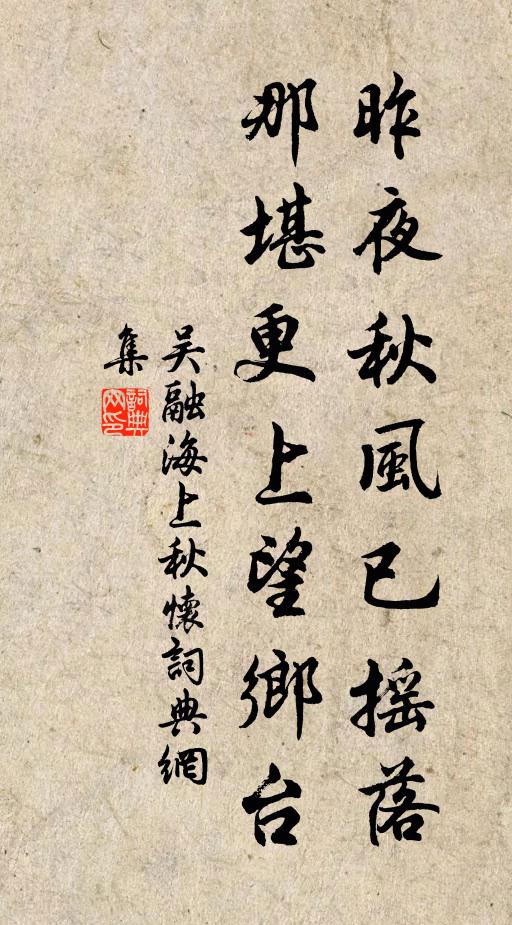 昨夜秋風已摇落
那堪更上望鄉台
吴融海上秋懷詞典網
集
詞典网印